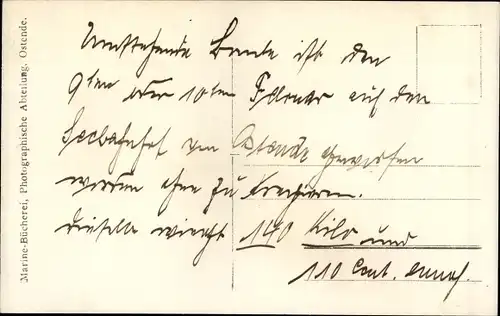 Umstehende Bombe ist den
9ten oder 10ten Februar auf den
Seebahnhof von Ostende geworfen
worden ohne zu krepieren.
dieselbe wiegt 140 Kilo und
110 Cent.
Marine-Bücherei, Photographische Abteilung, Ostende.